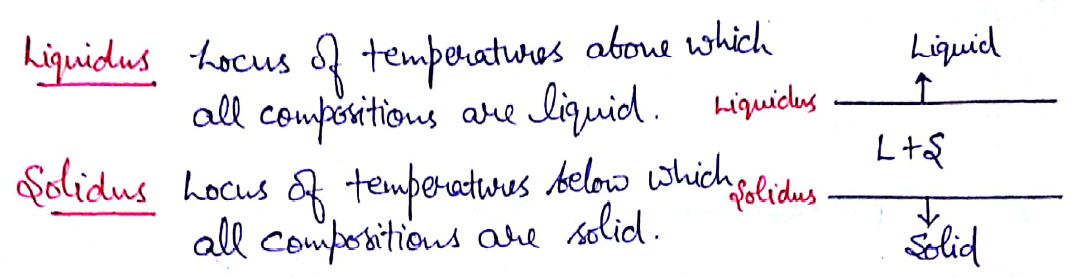 Liquidus Locus of temperatures above which
all compositions are liquid.
Solidus Locus of temperatures below which
all compositions are solid.
Liquid
Liquidus
L+S
Solidus
Solid